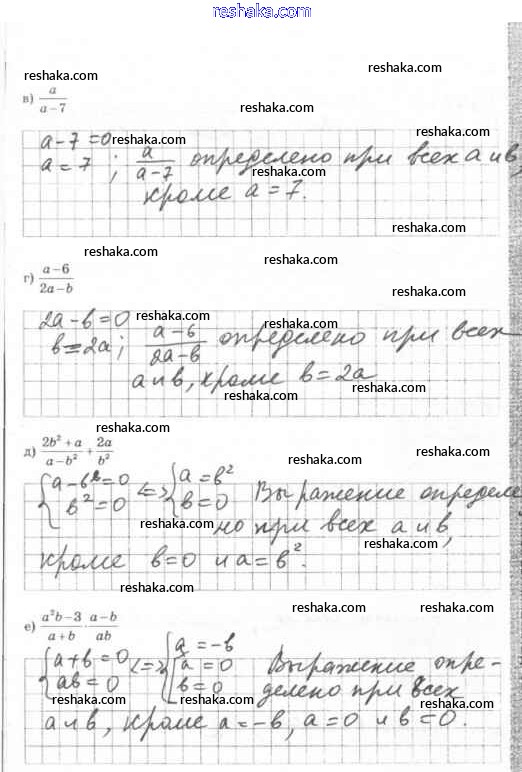 reshaka.com
reshaka.com
reshaka.com
в) a/(a−7)
reshaka.com
reshaka.com
a−7=0 reshaka.com
a=7 ; a/(a−7) определено при всех a и в,
reshaka.com
кроме a=7.
reshaka.com
reshaka.com
reshaka.com
г) (a−6)/(2a−b)
reshaka.com
2a−в=0 reshaka.com
reshaka.com
в=2a; (a−6)/(2a−в) определено при всех
a и в, кроме в=2a
reshaka.com
reshaka.com
д) (2b²+a)/(a−b²) + 2a/b²
reshaka.com
reshaka.com
{a−в²=0 <=> {a=в²
reshaka.com
{в²=0 {в=0 Выражение определе
reshaka.com но при всех a и в,
reshaka.com
кроме в=0 и a=в².
reshaka.com
reshaka.com
reshaka.com
е) (a²b−3)/(a+b) · (a−b)/(ab)
{a+в=0 <=> {a=−в
{aв=0 {a=0 Выражение опре-
{в=0 делено при всех
reshaka.com
reshaka.com
a и в, кроме a=−в, a=0 и в=0.
reshaka.com
reshaka.com